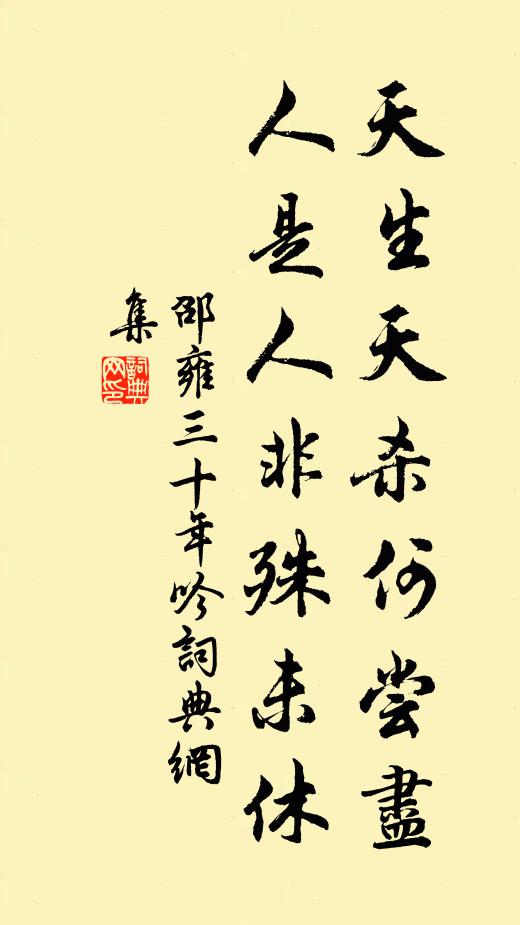 天生天杀何尝盡
人是人非殊未休
邵雍三十年吟詞典網
集
詞典网印